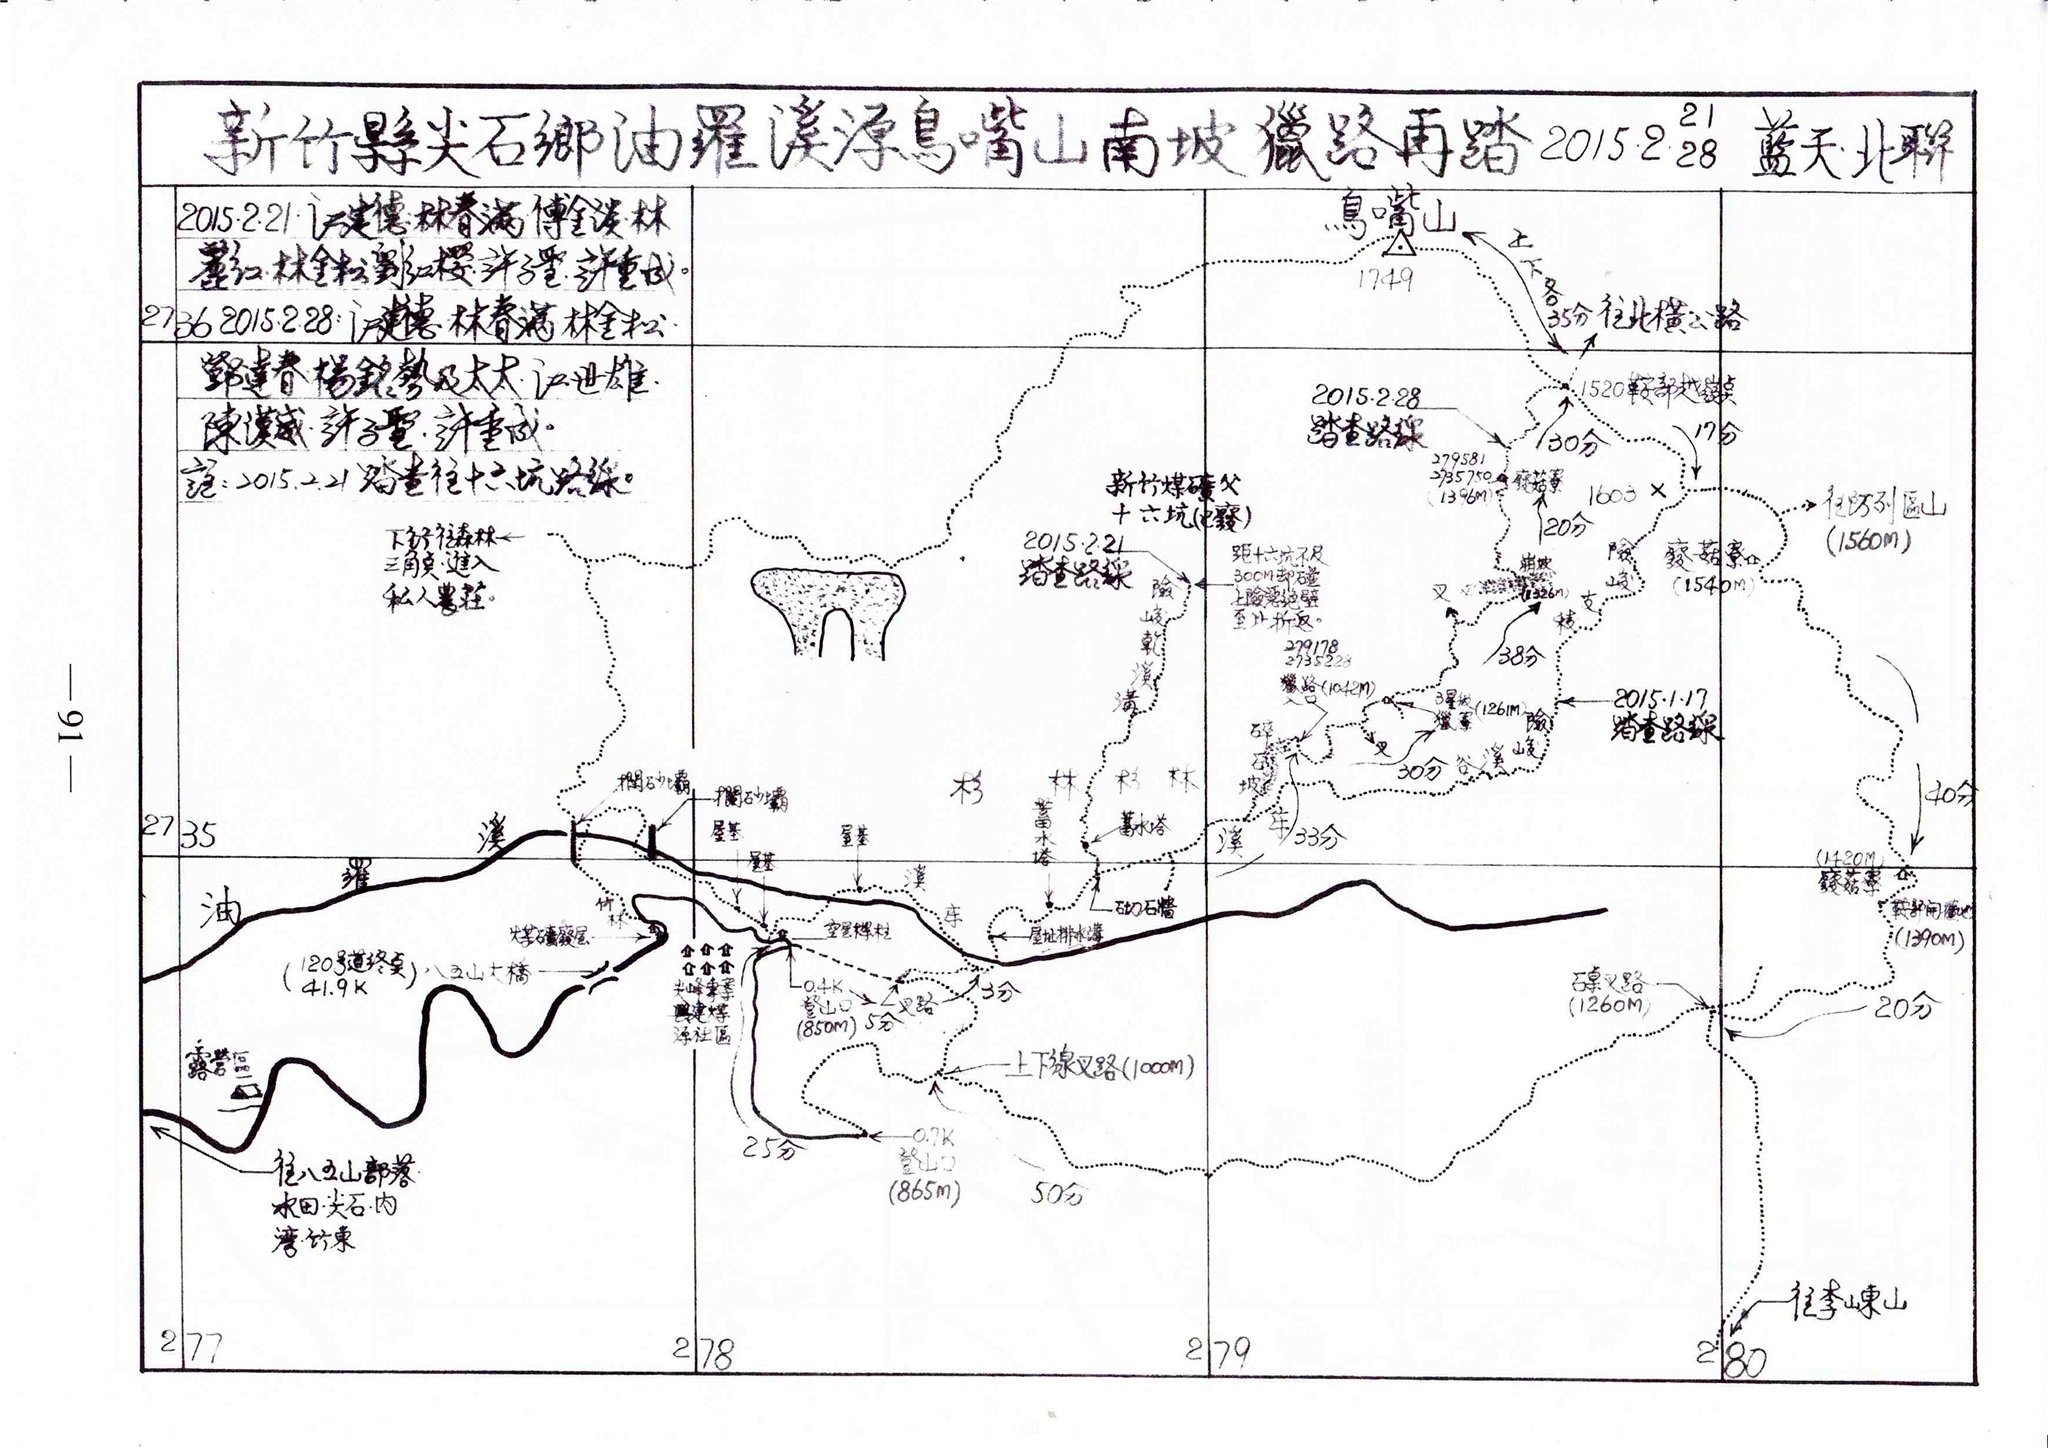 新竹縣尖石鄉油羅溪源鳥嘴山南坡獵路再踏 2015.2.21 28 藍天.北聯
2015.2.21.江建德.林春滿.傅金淡.林
麗紅.林金松.劉紅櫻.許子聖.許重成。
2015.2.28:江建德.林春滿.林金松.
鄧達春.楊銘勢及太太.江世雄.
陳漢威.許子聖.許重成。
註:2015.2.21踏查往十六坑路線。
2736
下行往森林
三角點.進入
私人農莊。
鳥嘴山
1749
上下各
35分
往北橫公路
1520鞍部越嶺點
2015.2.28
踏查路線
30分
17分
279581
2735750
(1396M)
廢菇寮
1603
20分
往防列區山
(1560M)
廢菇寮
(1540M)
新竹煤礦父
十六坑(已廢)
2015.2.21
踏查路線
距十六坑不足
300M卻碰
上險惡絕壁
至此折返。
險峻乾溪溝
279178
2735223
獵路
入口
(1042M)
3星級
獵寮
(1261M)
(1326M)
叉
38分
險峻
支稜
2015.1.17
踏查路線
險峻
溪谷
30分
叉
碎石礫坡
杉林
杉林
蓄水塔
蓄水塔
溪
33分
40分
攔砂壩
攔砂壩
屋基
屋基
屋基
2735
油羅溪
竹林
煤礦廢屋
(120号道終點)
41.9K
八五山大橋
空屋樑柱
砌石牆
屋址排水溝
尖峰東寮
興建煤
源社區
0.4K
登山口
(850M)
5分
叉路
3分
(1420M)
廢菇寮
鞍部開墾地
(1390M)
石桌叉路
(1260M)
20分
露營區
上下線叉路(1000M)
25分
0.7K
登山口
(865M)
50分
往八五山部落.
水田.尖石.內
灣.竹東
往李崠山
277
278
279
280
— 91 —